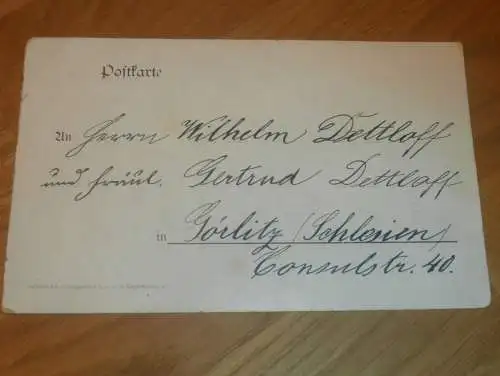 Postkarte
An Herrn Wilhelm Dettloff
und Fräul. Gertrud Dettloff
in Görlitz (Schlesien)
Consulstr. 40.